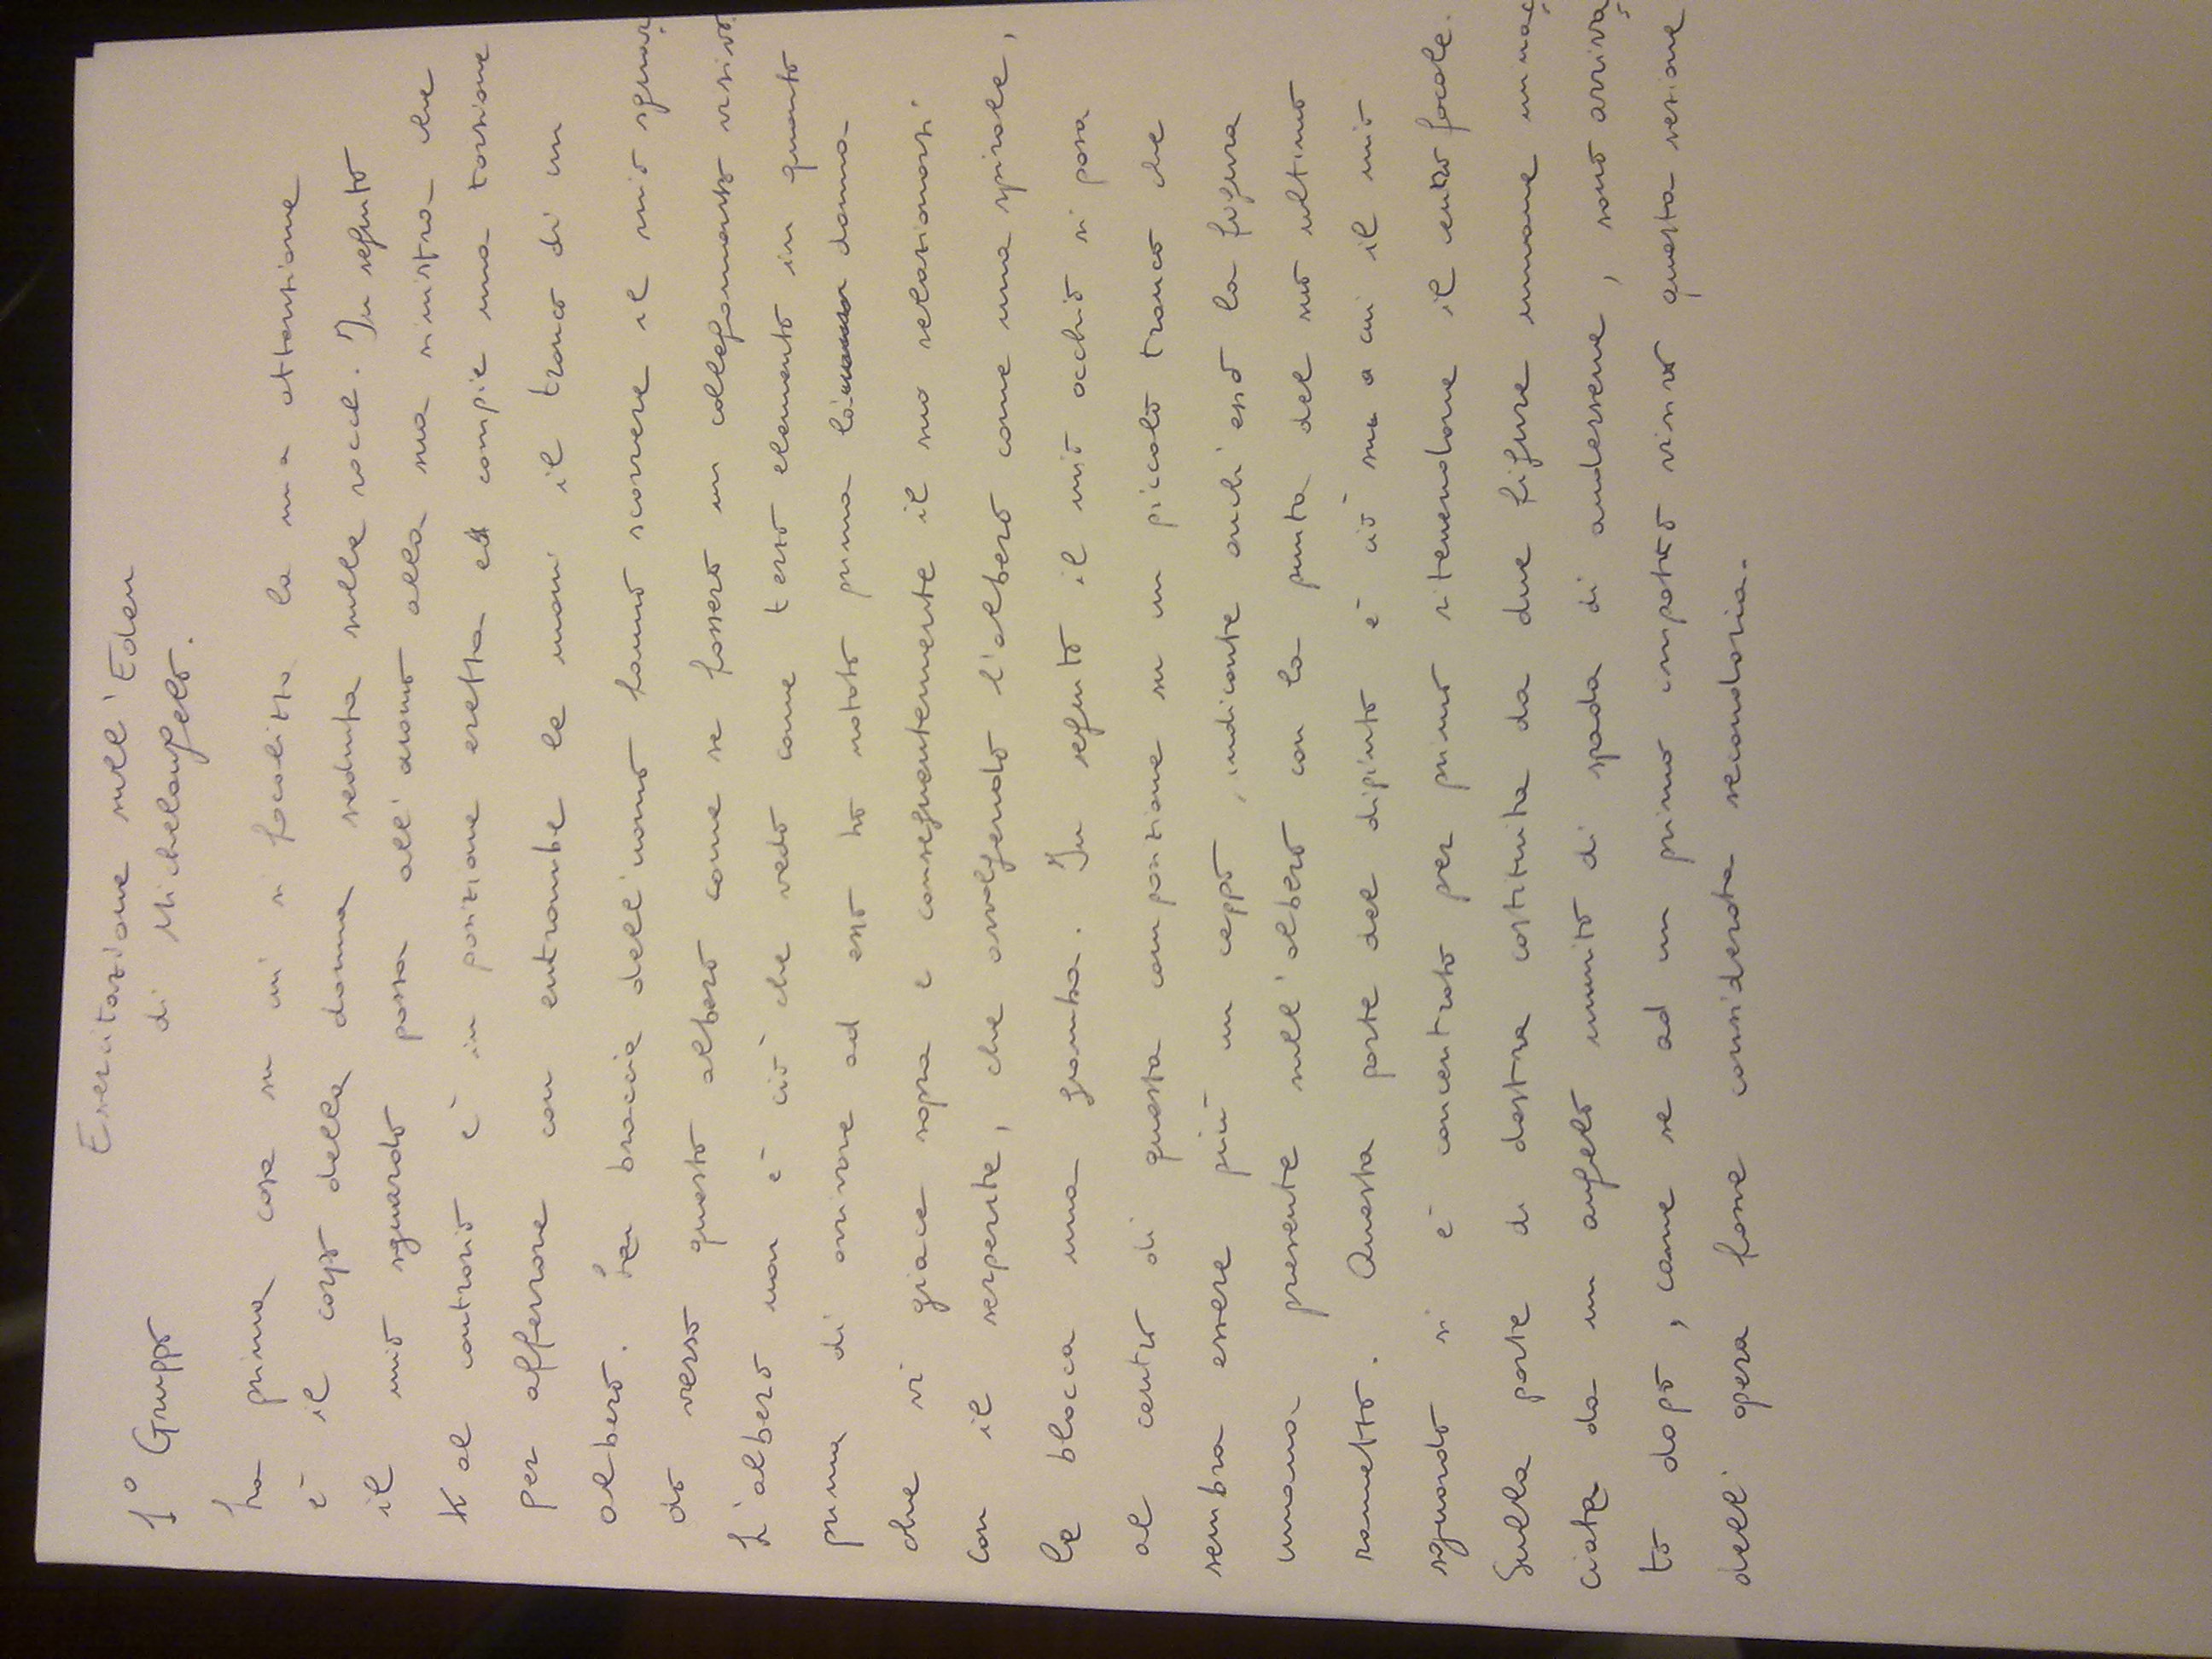 Esercitazione sull'Eden
di Michelangelo.
1° Gruppo
La prima cosa su cui si focalizza la mia attenzione
è il corpo della donna seduta sulle rocce. In seguito
il mio sguardo passa all'uomo alla sua sinistra che
al contrario è in posizione eretta ed compie una torsione
per afferrare con entrambe le mani il tronco di un
albero. Le braccia dell'uomo fanno scorrere il mio sguar
do verso questo albero come se fossero un collegamento visivo.
L'albero non è ciò che vedo come terzo elemento in quanto
prima di arrivare ad esso ho notato prima la donna
che vi giace sopra e conseguentemente il suo relazionarsi
con il serpente, che avvolgendo l'albero come una spirale,
le blocca una gamba. In seguito il mio occhio si posa
al centro di questa composizione su un piccolo tronco che
sembra essere più un ceppo, indicante anch'esso la figura
umana presente sull'albero con la punta del suo ultimo
rametto. Questa parte del dipinto è ciò su a cui il mio
sguardo si è concentrato per primo ritenendone il centro focale.
Sulla parte di destra costituita da due figure umane minac
ciate da un angelo munito di spada di andarsene, sono arriva
to dopo, come se ad un primo impatto visivo questa sezione
dell'opera fosse considerata secondaria.